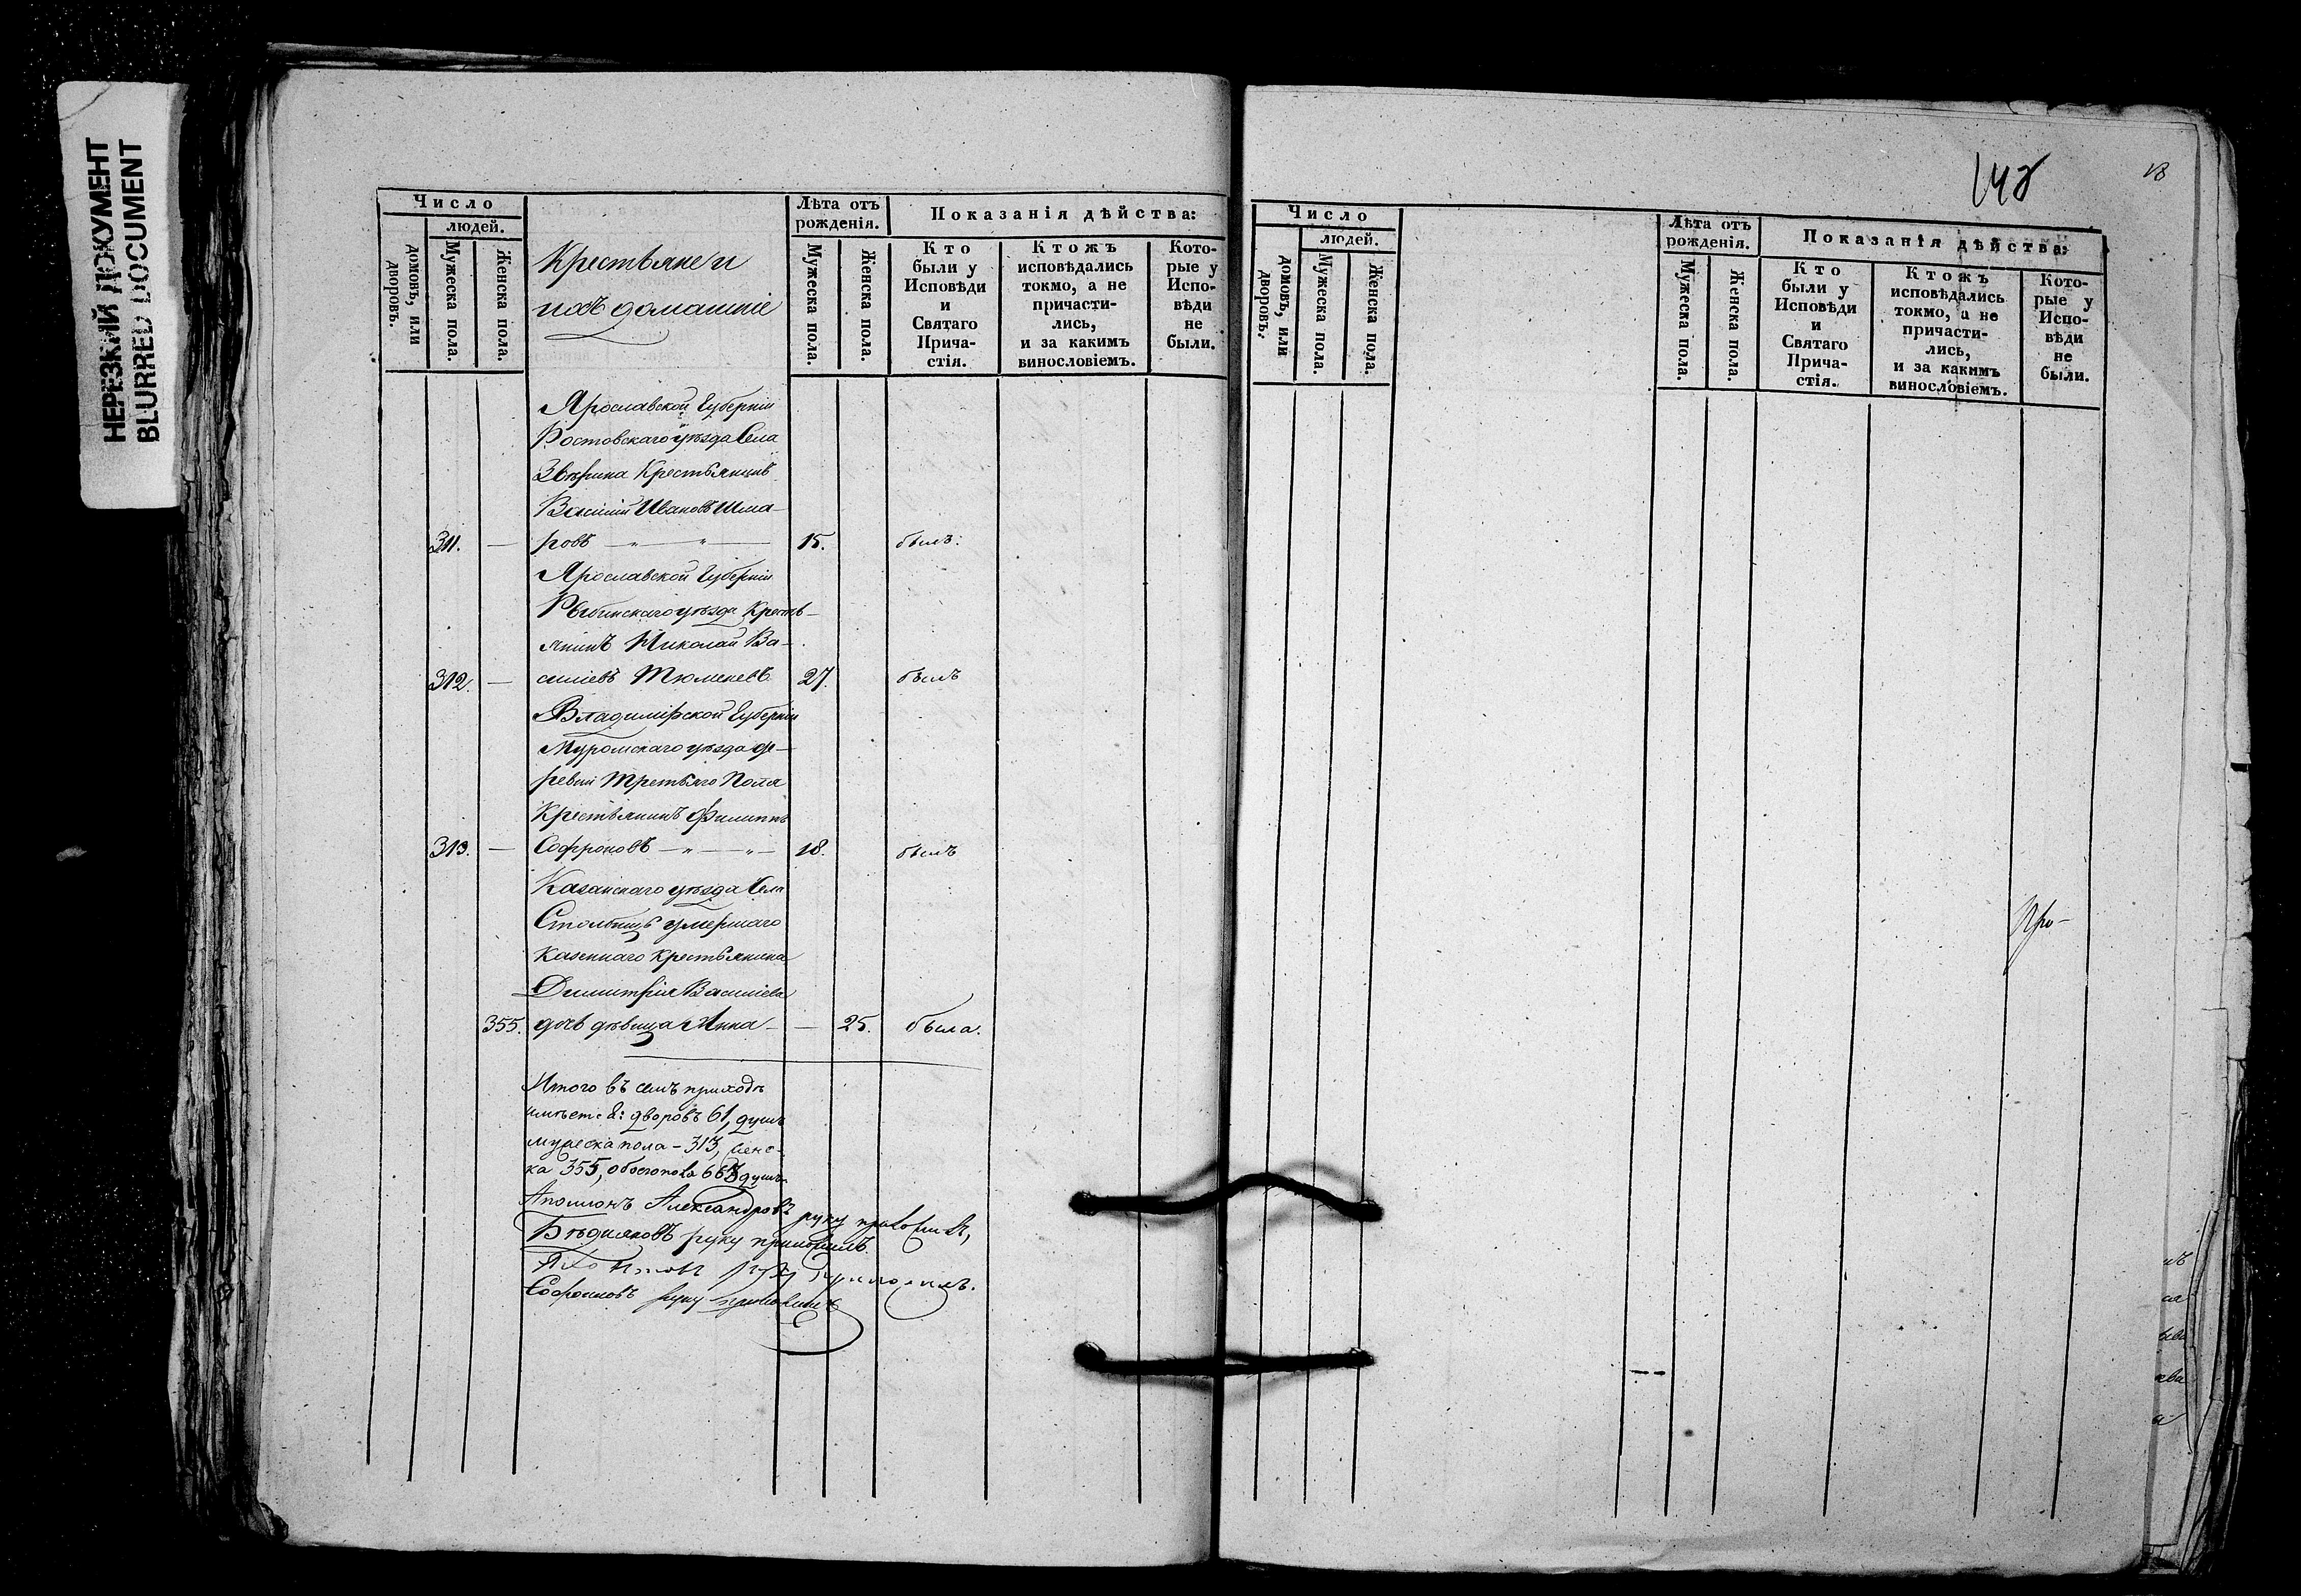 НЕРЕЗКИЙ ДОКУМЕНТ
BLURRED DOCUMENT
Число
людей.
домовъ, или дворовъ.
Мужеска пола.
Женска пола.
Крестьяне и
ихъ домашніе
Лѣта отъ рожденія.
Мужеска пола.
Женска пола.
Показанія дѣйства:
Кто были у Исповѣди и Святаго Прича-стія.
Ктожъ исповѣдались токмо, а не причасти-лись, и за какимъ винословіемъ.
Кото-рые у Испо-вѣди не были.
Ярославской Губерніи
Ростовскаго уѣзда Села
Звѣрина Крестьянинъ
Василій Ивановъ Шма-
311. — ровъ — „ — „ — 15. былъ.
Ярославской Губерніи
Рыбинскаго уѣзда Кресть-
янинъ Николай Ва-
312. — силіевъ Тюменевъ 27. былъ
Владимірской Губерніи
Муромскаго уѣзда де-
ревни Третьяго Поля
Крестьянинъ Филиппъ
313. — Софроновъ — „ — „ — 18. былъ
Казанскаго уѣзда Села
Столбищъ умершаго
казеннаго крестьянина
Димитрія Василіева
355. дочь дѣвица Анна — — 25. была.
Итого въ семъ приходѣ
имѣется: дворовъ 61, душъ
мужеска пола - 313, женс-
ка 355, обоего пола 668 душъ.
Аполлонъ Александровъ руку приложилъ,
руку приложилъ
руку приложилъ.
Софроновъ руку приложилъ
148
18
Число
людей.
домовъ, или дворовъ.
Мужеска пола.
Женска пола.
Лѣта отъ рожденія.
Мужеска пола.
Женска пола.
Показанія дѣйства:
Кто были у Исповѣди и Святаго Прича-стія.
Ктожъ исповѣдались токмо, а не причасти-лись, и за какимъ винословіемъ.
Кото-рые у Испо-вѣди не были.
Про-